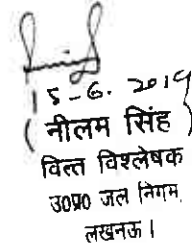 15-6.2019
( नीलम सिंह )
वित्त विश्लेषक
उ0प्र0 जल निगम,
लखनऊ।